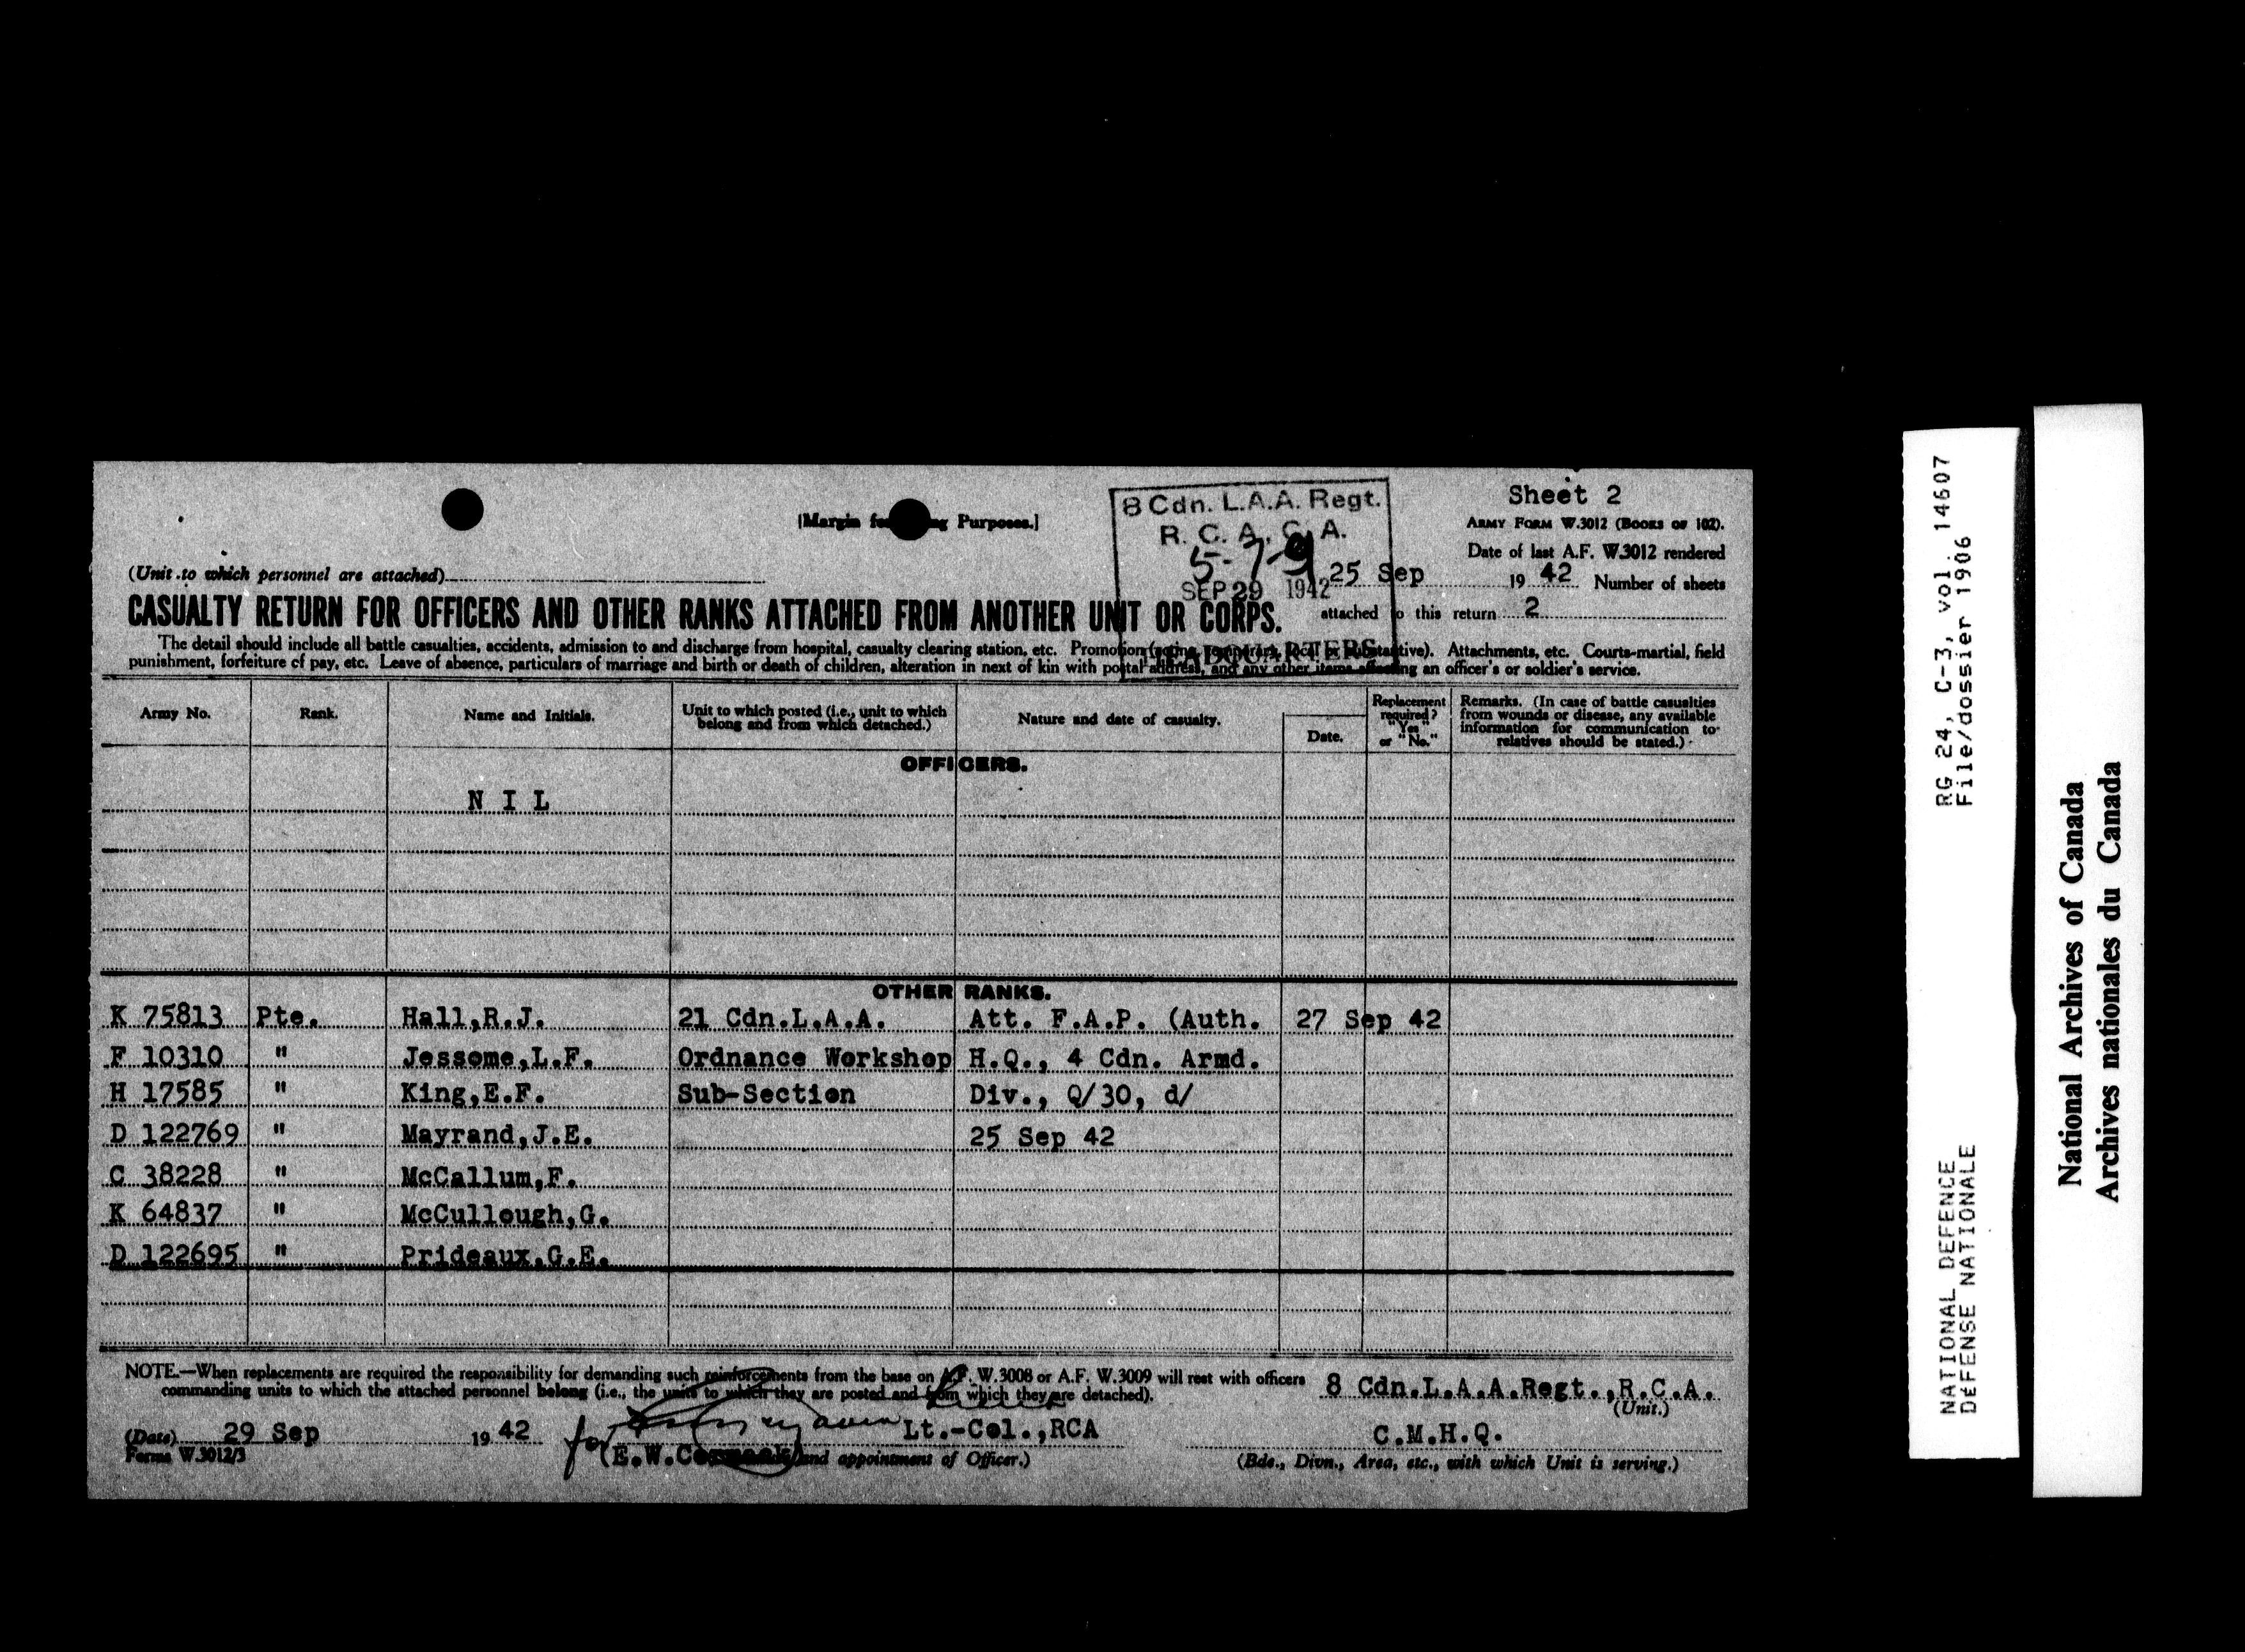 Sheet 2
8 Cdn. L.A.A. Regt.
R. C. A., C. A.
5-7-9
SEP 29 1942
HEADQUARTERS
[Margin for ng Purposes.]
ARMY FORM W.3012 (BOOKS OF 102).
Date of last A.F. W.3012 rendered
(Unit to which personnel are attached)
25 Sep 19 42 Number of sheets
CASUALTY RETURN FOR OFFICERS AND OTHER RANKS ATTACHED FROM ANOTHER UNIT OR CORPS.
attached to this return 2
The detail should include all battle casualties, accidents, admission to and discharge from hospital, casualty clearing station, etc. Promotion (acting, temporary, local or substantive). Attachments, etc. Courts-martial, field
punishment, forfeiture of pay, etc. Leave of absence, particulars of marriage and birth or death of children, alteration in next of kin with postal address, and any other items affecting an officer's or soldier's service.
Army No. Rank. Name and Initials. Unit to which posted (i.e., unit to which belong and from which detached.) Nature and date of casualty. Date. Replacement required? "Yes" or "No." Remarks. (In case of battle casualties from wounds or disease, any available information for communication to relatives should be stated.)
OFFICERS.
N I L
OTHER RANKS.
K 75813 Pte. Hall,R.J. 21 Cdn.L.A.A. Att. F.A.P. (Auth. 27 Sep 42
F 10310 " Jessome,L.F. Ordnance Workshop H.Q., 4 Cdn. Armd.
H 17585 " King,E.F. Sub-Section Div., Q/30, d/
D 122769 " Mayrand,J.E. 25 Sep 42
C 38228 " McCallum,F.
K 64837 " McCullough,G.
D 122695 " Prideaux,G.E.
NOTE.—When replacements are required the responsibility for demanding such reinforcements from the base on A.F. W.3008 or A.F. W.3009 will rest with officers
commanding units to which the attached personnel belong (i.e., the units to which they are posted and from which they are detached).
8 Cdn.L.A.A.Regt.,R.C.A.
(Unit.)
(Date) 29 Sep 19 42 for Lt.-Col.,RCA
C.M.H.Q.
Forms W.3012/3
(E.W.Cormack) and appointment of Officer.)
(Bde., Divn., Area, etc., with which Unit is serving.)
RG 24, C-3, vol. 14607
File/dossier 1906
NATIONAL DEFENCE
DÉFENSE NATIONALE
National Archives of Canada
Archives nationales du Canada